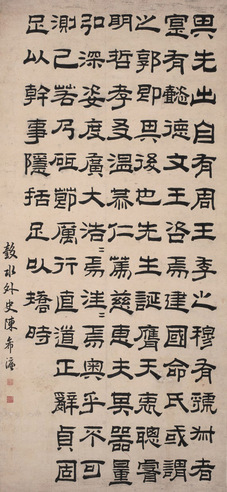 其先出自有周王季之穆有虢叔者
寔有懿德文王咨焉建國命氏或謂
之郭即其後也先生誕膺天衷聰睿
明哲孝友溫恭仁篤慈惠夫其器量
弘深姿度廣大浩〻焉汪〻焉奧乎不可
測已若乃砥節厲行直道正辭貞固
足以幹事隱括足以矯時
穀水外史陳希濂